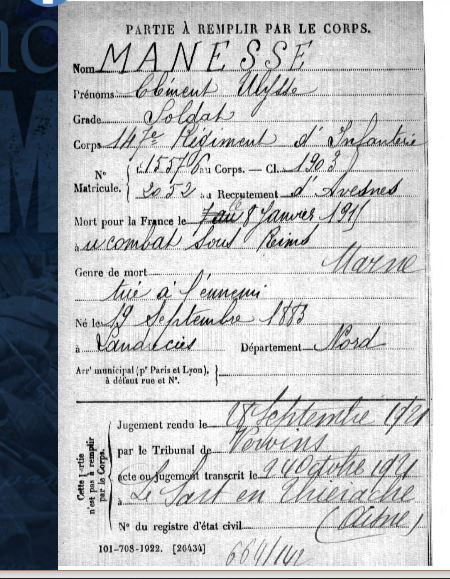 PARTIE À REMPLIR PAR LE CORPS.
Nom MANESSE
Prénoms Clément Ulysse
Grade Soldat
Corps 147e Régiment d'Infanterie
N° Matricule. { au Corps. — Cl. 1903
2052 au Recrutement d'Avesnes
Mort pour la France le 8 Janvier 1915
à u combat sous Reims
Marne
Genre de mort
tué à l'ennemi
Né le 19 Septembre 1883
à Landrecies Département Nord
Arr' municipal (p' Paris et Lyon), à défaut rue et N°. }
Cette partie n'est pas à remplir par le Corps.
Jugement rendu le Septembre 1921
par le Tribunal de Vervins
acte ou jugement transcrit le Octobre 1921
à Le Sart en Thiérache
(Aisne)
N° du registre d'état civil
101-708-1922. [26434]